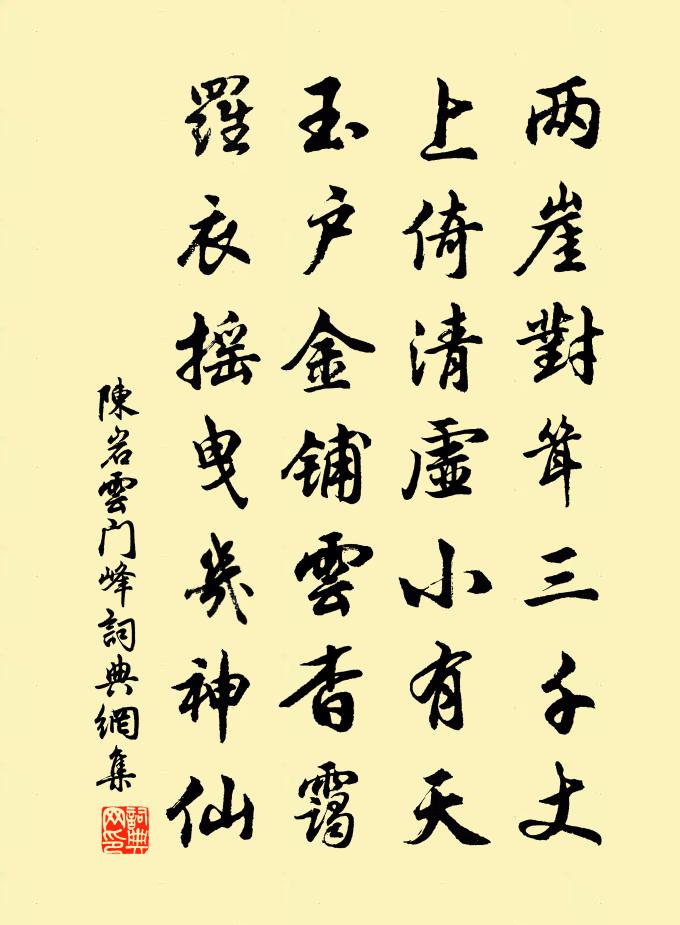 两崖對耸三千丈
上倚清虛小有天
玉户金铺雲杳靄
羅衣摇曳幾神仙
陳岩雲门峰詞典網集
詞典
网印